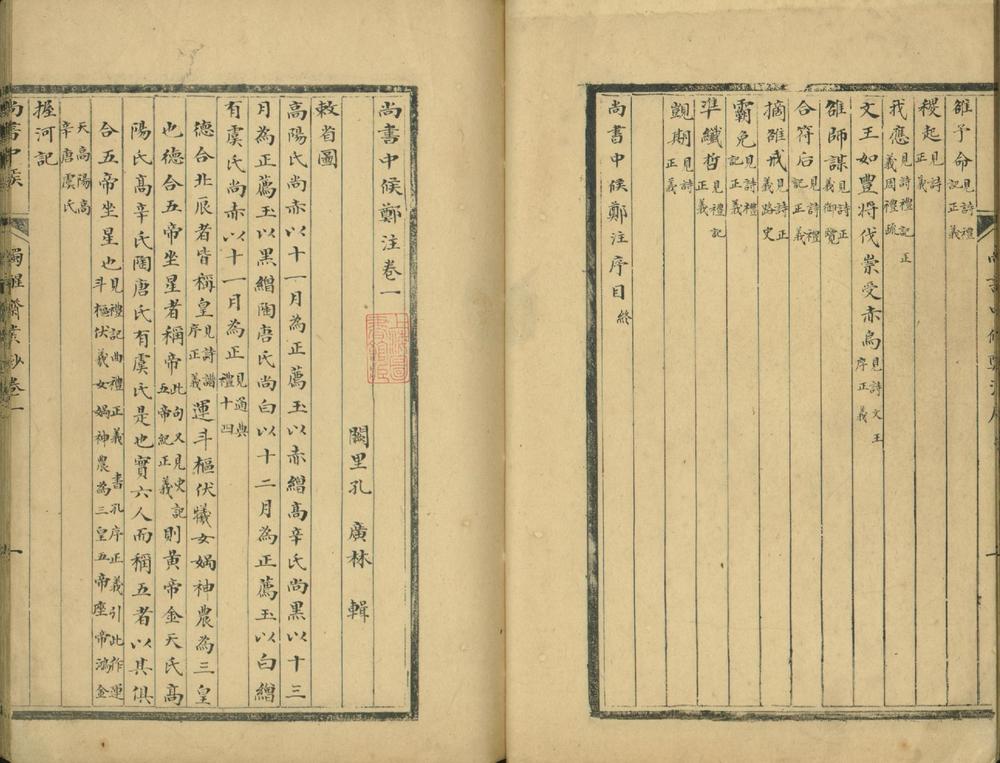 雒予命見詩禮記正義
稷起見詩正義
我應見詩禮記正義周禮疏
文王如豐將伐崇受赤烏見詩文王序正義
雒師謀見詩正義御覽
合符后見詩禮記正義
摘雒戒見詩正義路史
霸免見詩禮記正義
準纖哲見禮記正義
覬期見詩正義
尚書中候鄭注序目終
尚書中候鄭注卷一
闕里孔廣林輯
敕省圖
高陽氏尚赤以十一月為正薦玉以赤繒高辛氏尚黑以十三
月為正薦玉以黑繒陶唐氏尚白以十二月為正薦玉以白繒
有虞氏尚赤以十一月為正見通典禮十四
德合北辰者皆稱皇見詩譜序正義運斗樞伏犧女媧神農為三皇
也德合五帝坐星者稱帝此句又見史記五帝紀正義則黃帝金天氏高
陽氏高辛氏陶唐氏有虞氏是也實六人而稱五者以其俱
合五帝坐星也見禮記曲禮正義書孔序正義引此作運斗樞伏羲女媧神農為三皇五帝座帝鴻金
天高陽高辛唐虞氏
握河記
尚書中候
卷一
一